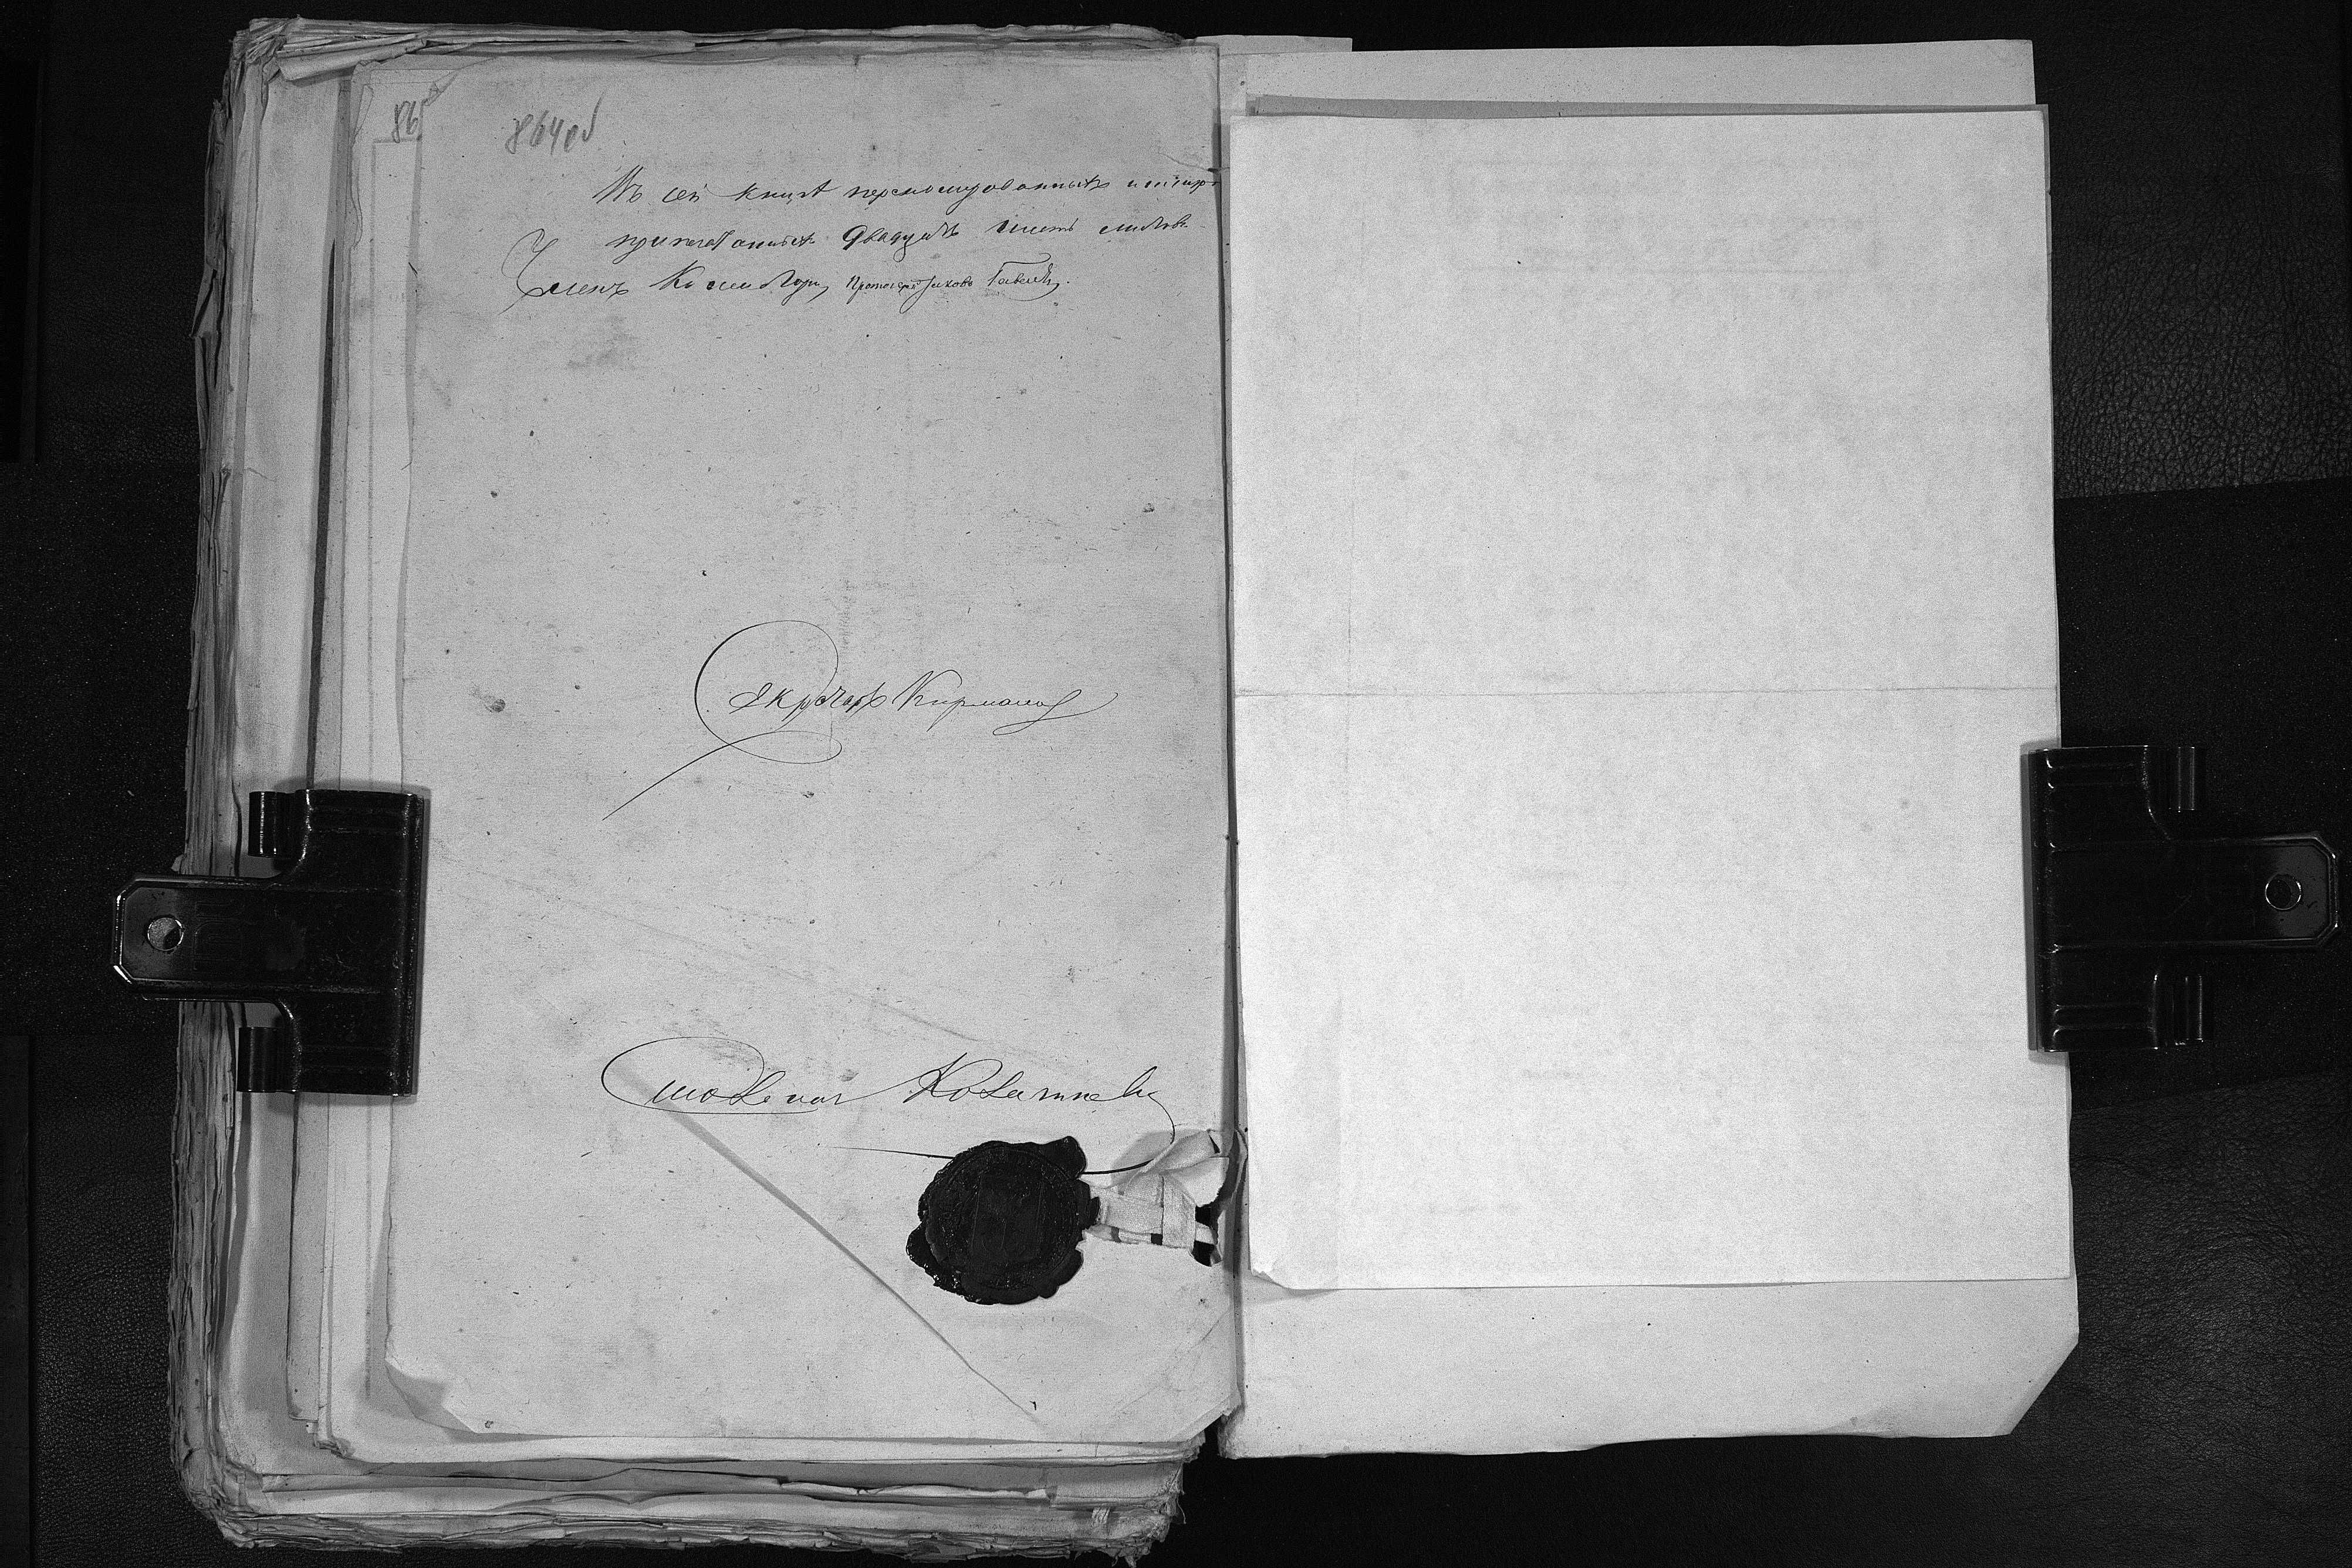 86
864 об
Въ сей книгѣ перенумерованныхъ и шнуро
припечатанныхъ двадцать шесть листовъ.
Членъ Консисторіи, Протоіерей Іаковъ
Секретарь
Столоначальникъ